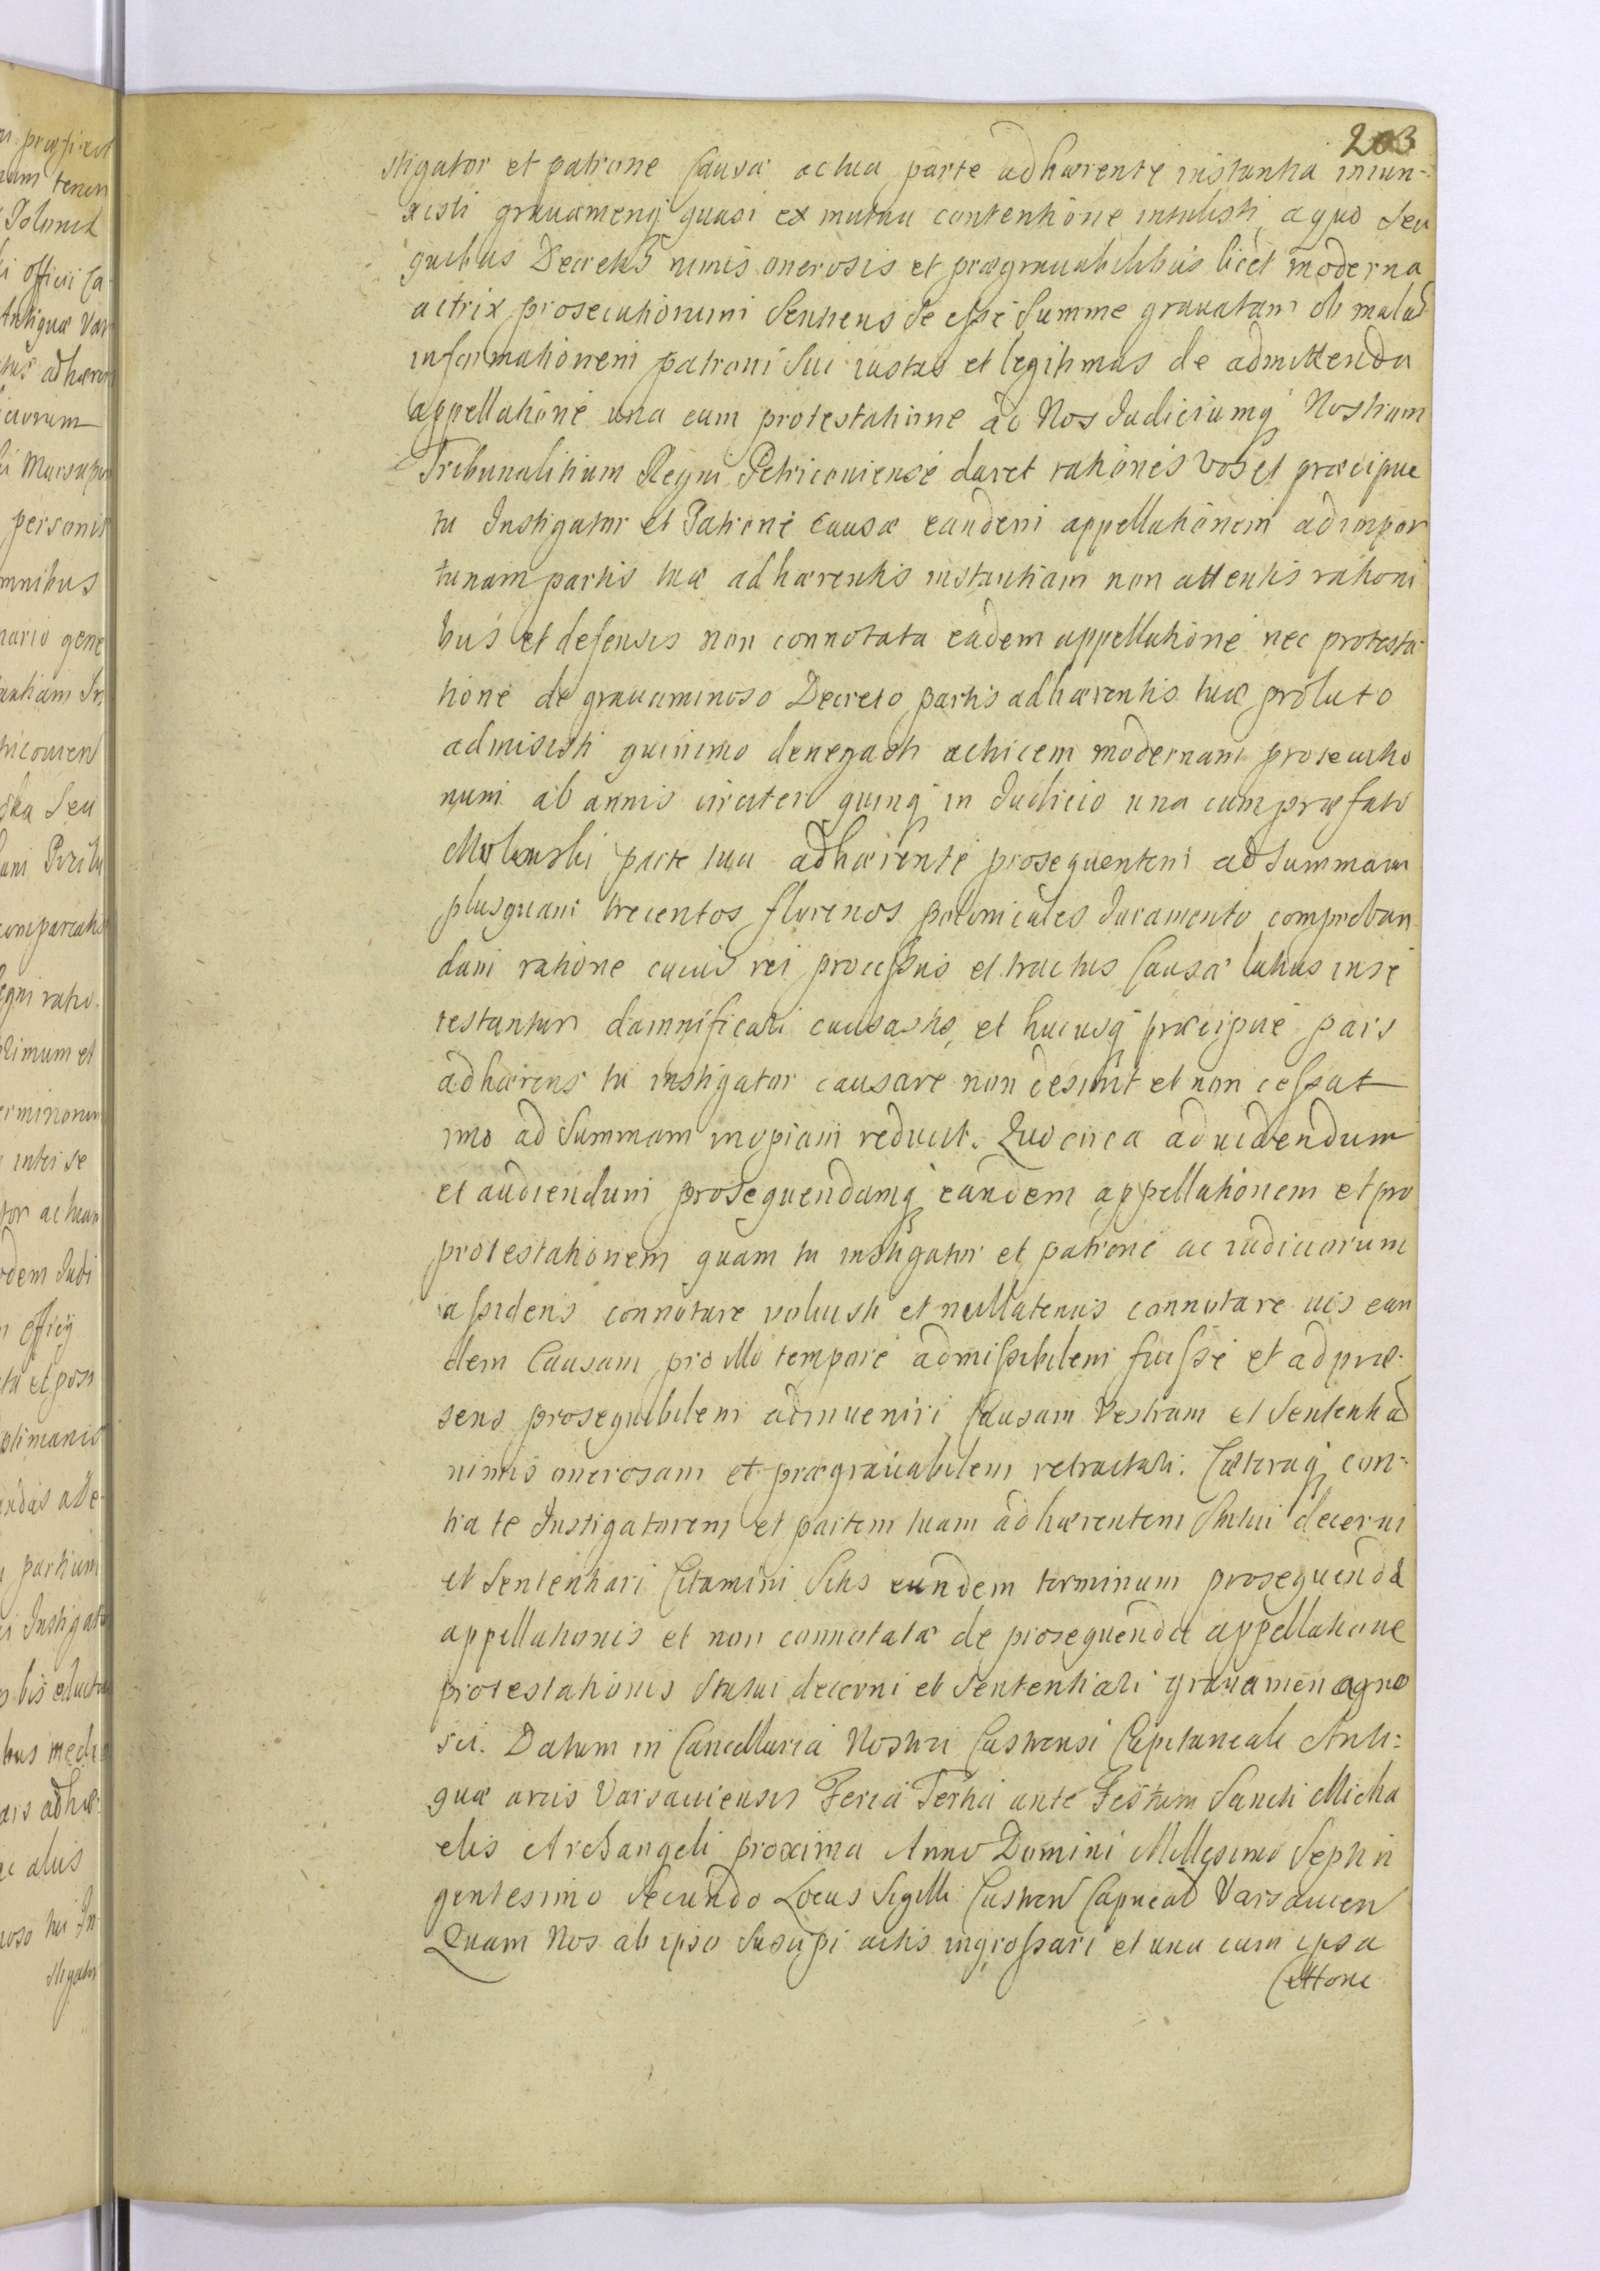 203
stigator et patrone Causæ ac tua parte adhærente instantia iniun-
xisti gravamenq quasi ex mutua contentione intulisti, a quo seu
quibus Decretis nimis onerosis et prægravabilibus licet moderna
actrix prosecutionum sentiens se esse summe gravatam ob mala
informationem patroni sui iustas et legitimas de admittenda
appellatione una cum protestatione ad Nos Iudiciumq Nostrum
Tribunalitium Regni Petricoviense daret rationes vos et præcipue
tu Instigator et Patrone causæ eandem appellationem ad impor
tunam partis tuæ adhærentis instantiam non attentis rationi
bus et defensis non connotata eadem appellatione nec protesta
tione de gravaminoso Decreto partis adhærentis tuæ prolato
admisisti quinimo denegasti actricem modernam prosecutio
num ab annis circiter quinq in Iudicio una cum præfato
parte tua adhærente prosequentem ad summam
plusquam trecentos florenos polonicales Iuramento comproban
dam ratione cuius rei processus et tractus Causæ latius inse
restantur damnificari causastis, et hucusq præcipue pars
adhærens tu instigator causare non desinit et non cessat
imo ad summam inopiam reducit. Quocirca ad videndum
et audiendum prosequendamq eandem appellationem et pro
protestationem quam tu instigator et patrone ac iudiciorum
assidens connotare noluisti et nullatenus connotare vis ean
dem Causam pro illo tempore admissibilem fuisse et ad præ-
sens prosequibilem adinveniri Causam Vestram et Sententiã
nimis onerosam et prægravabilem retractari. Cæteraq con-
tra te Instigatorem et partem tuam adhærentem statui decerni
et Sententiari Citamini Sitis eundem terminum prosequendæ
appellationis et non connotatæ de prosequenda appellatione
protestationis statui decerni et sententiari gravamen agno
sci. Datum in Cancellaria Nostra Castrensi Capitaneali Anti-
quæ arcis Varsaviensis Feria Tertia ante Festum Sancti Micha
elis Archangeli proxima Anno Domini Millesimo Septin
gentesimo Secundo Locus Sigilli Castren Capneal Varsavien
Quam Nos ab ipso suscipi actis ingrossari et una cum ipsa